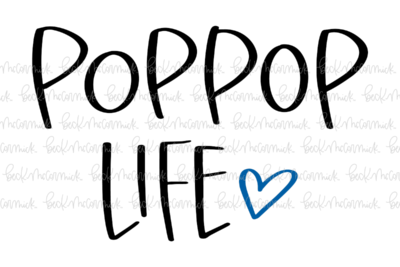 POPPOP
LIFE